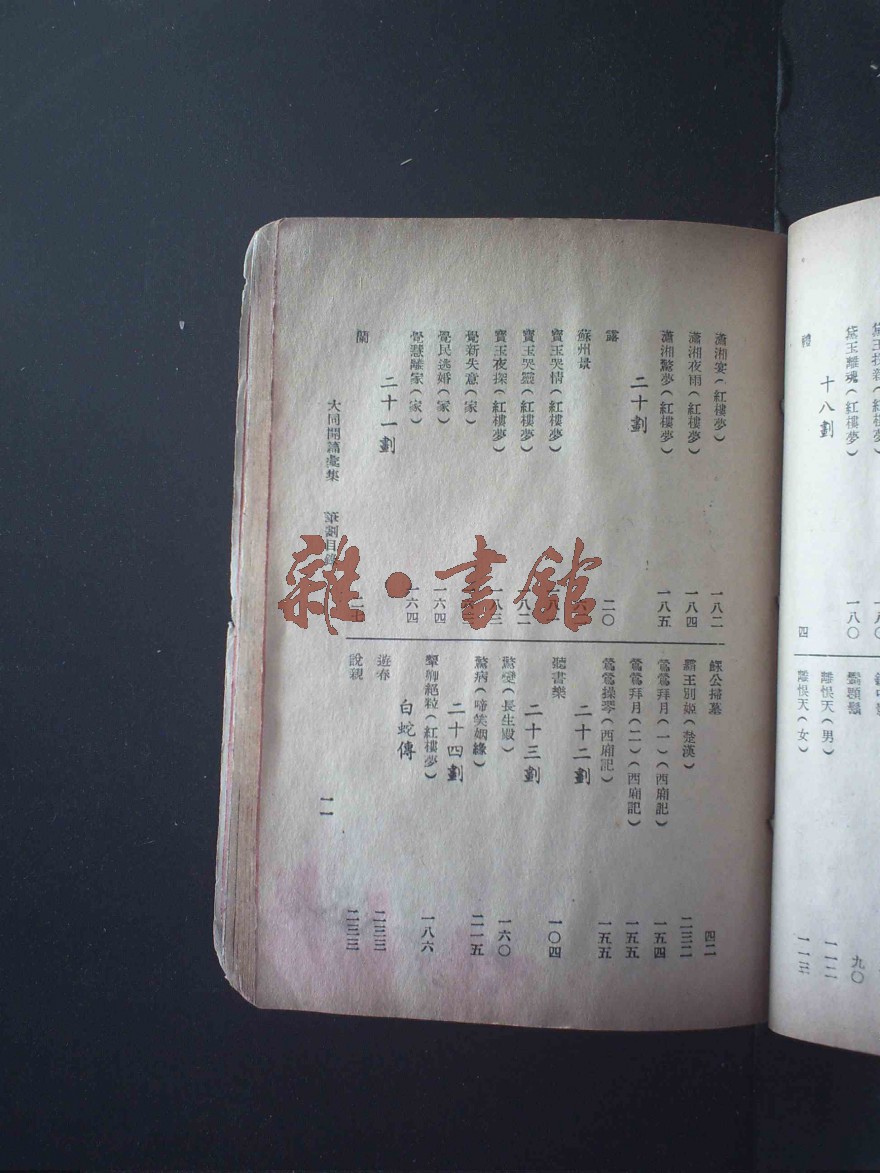 黛玉離魂(紅樓夢) 一八〇
十八劃
禮 四
九〇
離恨天(男) 一一二
離恨天(女) 一一三
瀟湘宴(紅樓夢) 一八二
瀟湘夜雨(紅樓夢) 一八四
瀟湘驚夢(紅樓夢) 一八五
二十劃
露 二〇
蘇州景
寶玉哭情(紅樓夢)
寶玉哭靈(紅樓夢) 一八二
寶玉夜探(紅樓夢) 一八三
覺新失意(家)
覺民逃婚(家) 一六四
覺慧離家(家) 一六四
二十一劃
蘭
蘇公掃墓 四二
霸王別姬(楚漢) 二三二
鶯鶯拜月(一)(西廂記) 一五四
鶯鶯拜月(二)(西廂記) 一五五
鶯鶯操琴(西廂記) 一五五
二十二劃
聽書樂 一〇四
二十三劃
驚變(長生殿) 一六〇
驚病(啼笑姻緣) 二一五
二十四劃
顰卿絕粒(紅樓夢) 一八六
白蛇傳
遊春 二三三
說親 二三三
大同開篇彙集 筆劃目錄 一一
雜·書館